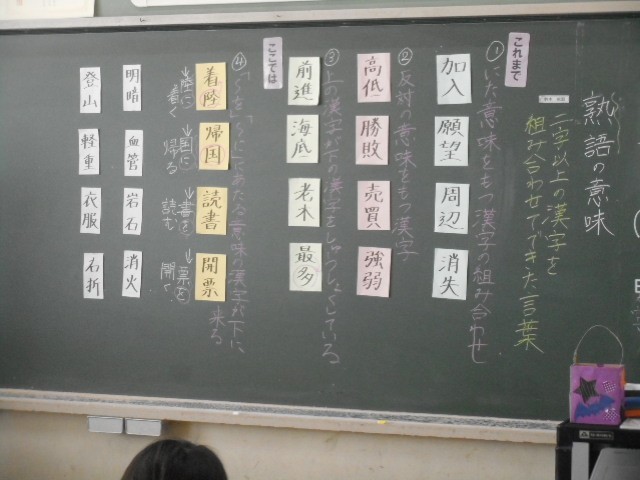 熟語の意味
二字以上の漢字を
組み合わせてできた言葉
これまで
①にた意味をもつ漢字の組み合わせ
加入
願望
周辺
消失
②反対の意味をもつ漢字
高低
勝敗
売買
強弱
③上の漢字が下の漢字をしゅうしょくしている
前進
海底
老木
最多
ここでは
④「〜を」「〜に」にあたる意味の漢字が下に
来る
着陸
帰国
読書
開票
↓陸に
着く
↓国に
帰る
↓書を
読む
↓票を
開く
明暗
血管
岩石
消火
登山
軽重
衣服
右折